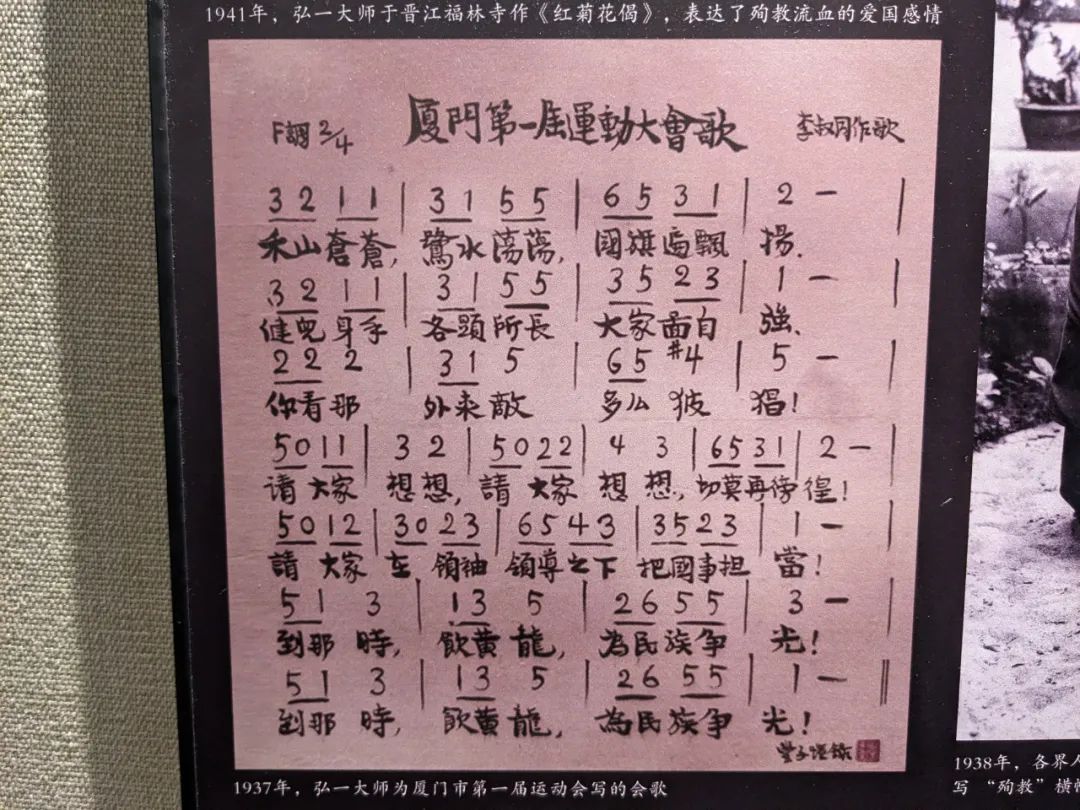 1941年，弘一大师于晋江福林寺作《红菊花偈》，表达了殉教流血的爱国感情
F調 2/4 厦門第一届運動大會歌 李叔同作歌
3 2 1 1 | 3 1 5 5 | 6 5 3 1 | 2 — |
禾山蒼蒼, 鷺水蕩蕩, 國旗遍飄 揚.
3 2 1 1 | 3 1 5 5 | 3 5 2 3 | 1 — |
健兒身手 各顕所長 大家圖自 強.
2 2 2 | 3 1 5 | 6 5 #4 | 5 — |
你看那 外来敵 多么 狓 猖!
5 0 1 1 | 3 2 | 5 0 2 2 | 4 3 | 6 5 3 1 | 2 — |
请 大家 想想, 請 大家 想 想, 切莫再徬 徨!
5 0 1 2 | 3 0 2 3 | 6 5 4 3 | 3 5 2 3 | 1 — |
請 大家 在 领袖 领導之下 把國事担 當!
5 1 3 | 1 3 5 | 2 6 5 5 | 3 — |
到那 時, 飲黄 龍, 為民族争 光!
5 1 3 | 1 3 5 | 2 6 5 5 | 1 — ‖
到那 時, 飲黄 龍, 為民族争 光!
豐子愷錄
1937年，弘一大师为厦门市第一届运动会写的会歌
1938年，各界
写“殉教”横